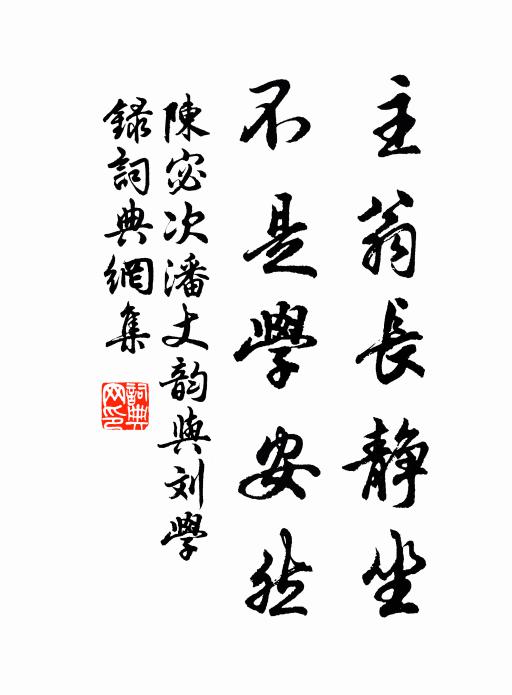 主翁長静坐
不是學安然
陳宓次潘丈韵與刘學
錄詞典網集
詞典
网印